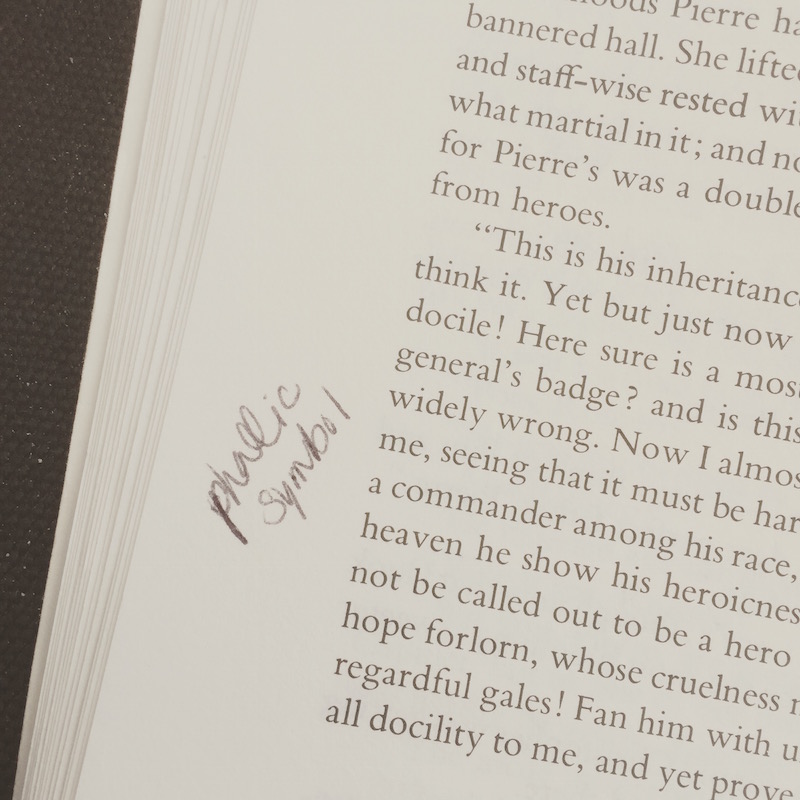 Pierre
bannered hall. She lifte
and staff-wise rested wi
what martial in it; and no
for Pierre's was a double
from heroes.
"This is his inheritanc
think it. Yet but just now
docile! Here sure is a mos
general's badge? and is this
widely wrong. Now I almos
me, seeing that it must be har
a commander among his race,
heaven he show his heroicnes
not be called out to be a hero
hope forlorn, whose cruelness
regardful gales! Fan him with u
all docility to me, and yet prove
phallic
symbol